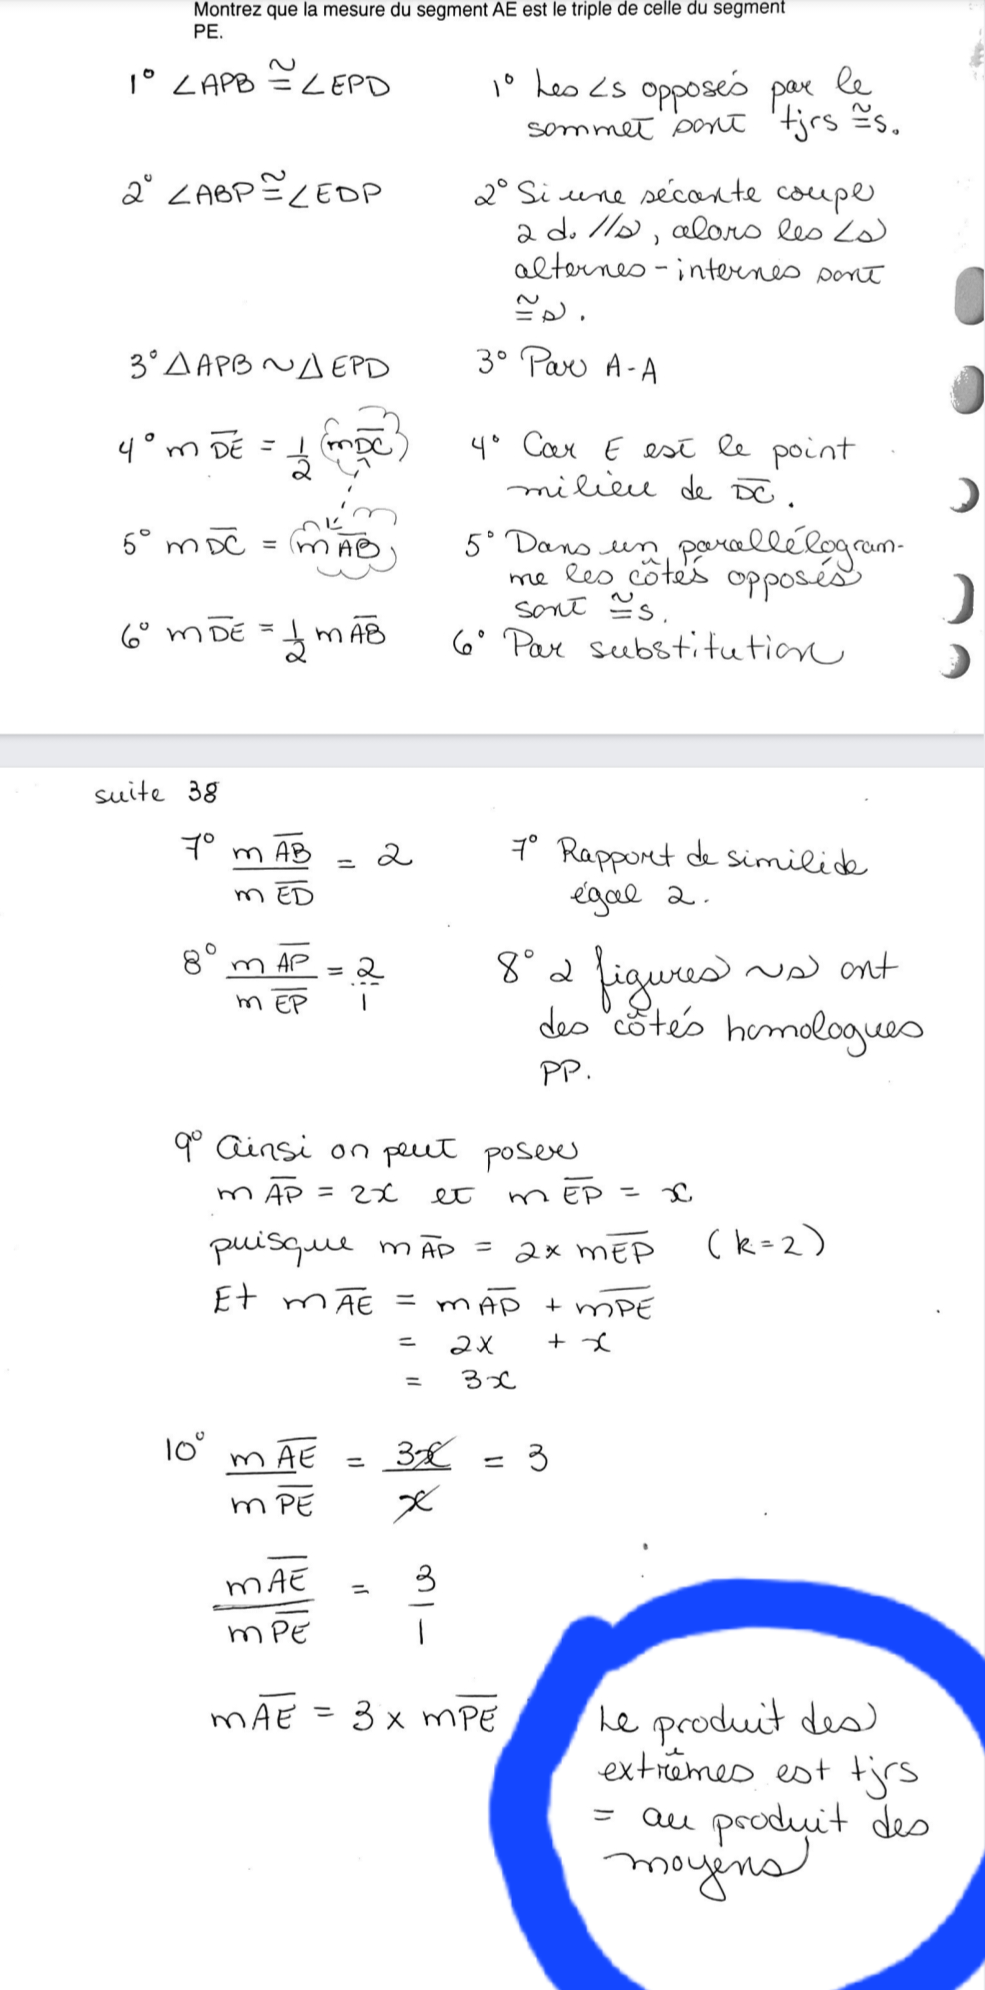 Montrez que la mesure du segment AE est le triple de celle du segment
PE.
1° ∠APB ≅ ∠EPD
1° Les ∠s opposés par le
sommet sont tjrs ≅s.
2° ∠ABP ≅ ∠EDP
2° Si une sécante coupe
2 d. //s, alors les ∠s
alternes-internes sont
≅s.
3° △APB ~ △EPD
3° Par A-A
4° m D̅E̅ = 1/2 (m D̅C̅)
4° Car E est le point
milieu de D̅C̅.
5° m D̅C̅ = (m A̅B̅)
5° Dans un parallélogram-
me les côtés opposés
sont ≅s.
6° m D̅E̅ = 1/2 m A̅B̅
6° Par substitution
suite 38
7° m A̅B̅ / m E̅D̅ = 2
7° Rapport de similide
égal 2.
8° m A̅P̅ / m E̅P̅ = 2/1
8° 2 figures ~s ont
des côtés homologues
PP.
9° Ainsi on peut poser
m A̅P̅ = 2x et m E̅P̅ = x
puisque m A̅P̅ = 2 x m E̅P̅ (k=2)
Et m A̅E̅ = m A̅P̅ + m P̅E̅
= 2x + x
= 3x
10° m A̅E̅ / m P̅E̅ = 3x / x = 3
m A̅E̅ / m P̅E̅ = 3 / 1
m A̅E̅ = 3 x m P̅E̅
Le produit des
extrêmes est tjrs
= au produit des
moyens